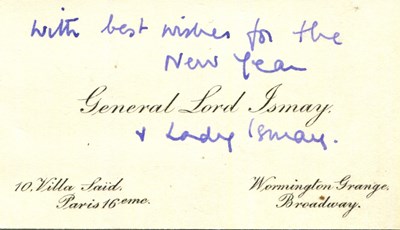 with best wishes for the
New Year
General Lord Ismay.
+ Lady Ismay.
10. Villa Saïd.
Paris 16eme.
Wormington Grange.
Broadway.